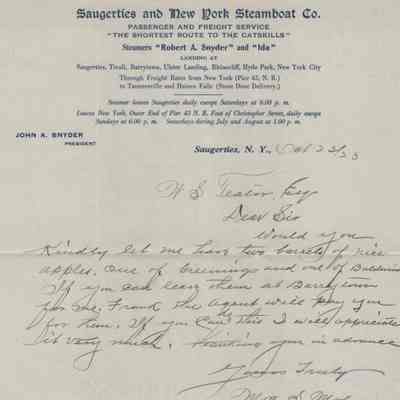 Saugerties and New York Steamboat Co.
PASSENGER AND FREIGHT SERVICE
"THE SHORTEST ROUTE TO THE CATSKILLS"
Steamers "Robert A. Snyder" and "Ida"
LANDING AT
Saugerties, Tivoli, Barrytown, Ulster Landing, Rhinecliff, Hyde Park, New York City
Through Freight Rates from New York (Pier 43, N. R.)
to Tannersville and Haines Falls (Store Door Delivery.)
Steamer leaves Saugerties daily except Saturdays at 6.00 p. m.
Leaves New York, Outer End of Pier 43 N. R. Foot of Christopher Street, daily except
Sundays at 6.00 p. m. Saturdays during July and August at 1.00 p. m.
JOHN A. SNYDER
PRESIDENT
Saugerties, N. Y.,
W S Teator, Esq
Dear Sir
Would you
Kindly let me have two barrels of nice
apples. One of Greenings and one of Baldwins
If you can leave them at Barrytown
for me, Fraud the agent will pay you
for them. If you can do this I will appreciate
it very much. Thanking you in advance
Yours Truly